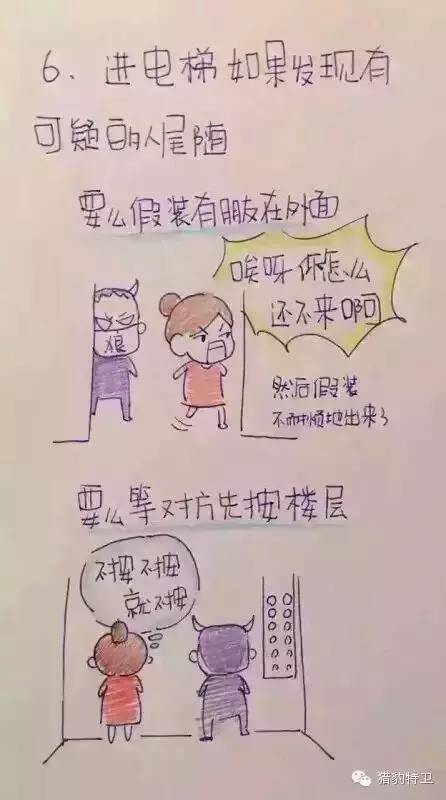 6、进电梯如果发现有
可疑的人尾随
要么假装有朋友在外面
哎呀你怎么
还不来啊
狼
然后假装
不耐烦地出来了
要么等对方先按楼层
不按不按
就不按
猎豹特卫